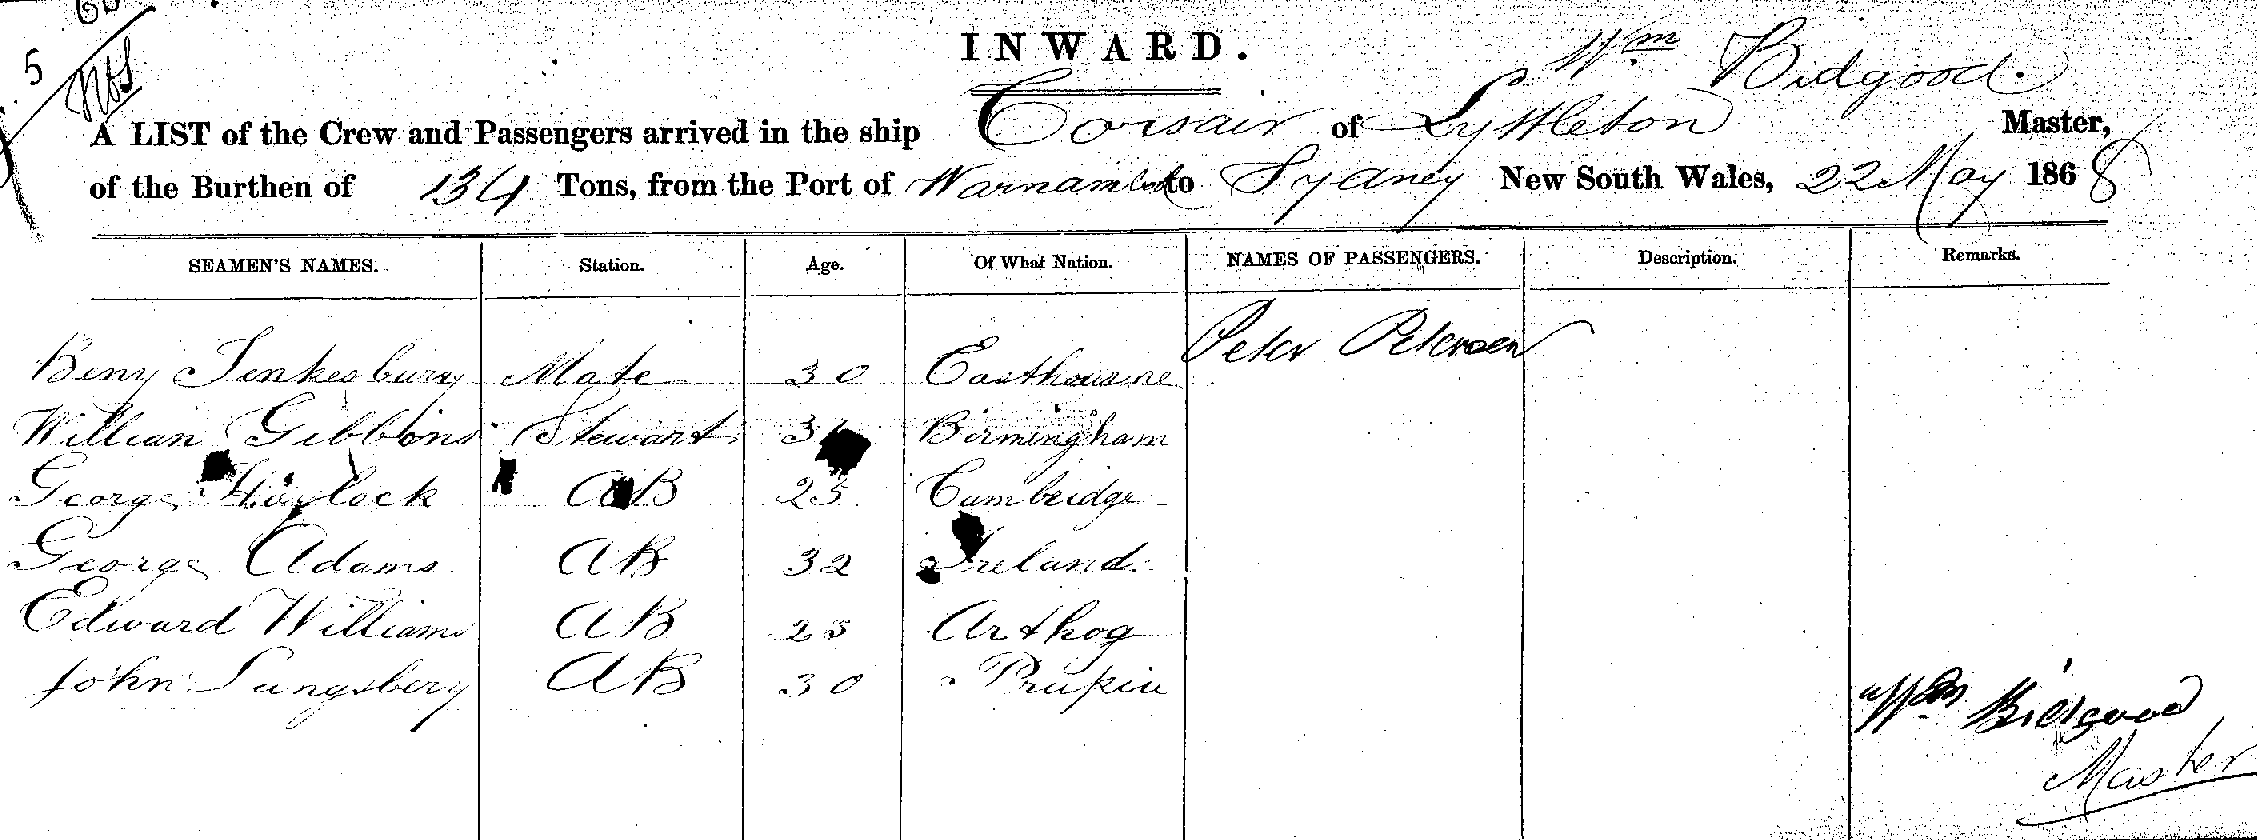 5
INWARD.
Wm Bidgood
A LIST of the Crew and Passengers arrived in the ship Corsair of Lyttleton Master,
of the Burthen of 134 Tons, from the Port of Warnambool to Sydney New South Wales, 22 May 1868
SEAMEN'S NAMES. Station. Age. Of What Nation. NAMES OF PASSENGERS. Description. Remarks.
Peter Petersen
Beny Tenkesbury Mate 30 Easthourne
Willian Gibbons Stewart Birmingham
George Haylock AB 25 Cambridge
George Adams AB 32 Ireland.
Edward Williams AB 25 Arthog
John Lungsbery AB 30
Wm Bidgood
Master